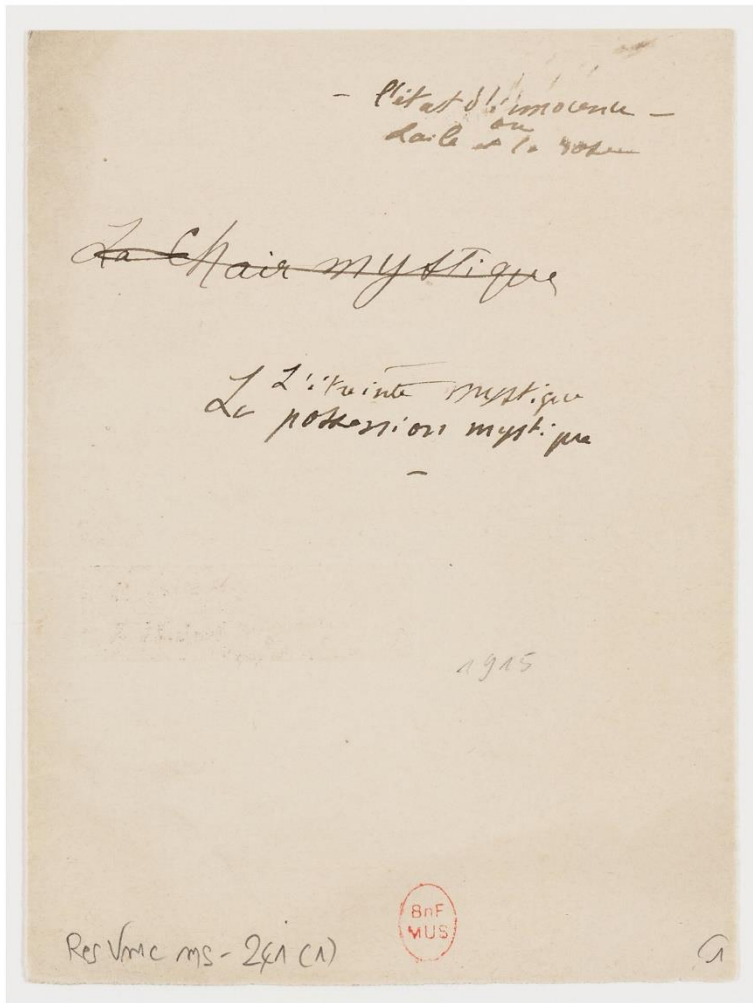 - l'état d'innocence -
ou
L'aile et la rose
La Chair mystique
L'étreinte mystique
La possession mystique
-
1915
BnF
MUS
Res Vmc ms-241 (1)